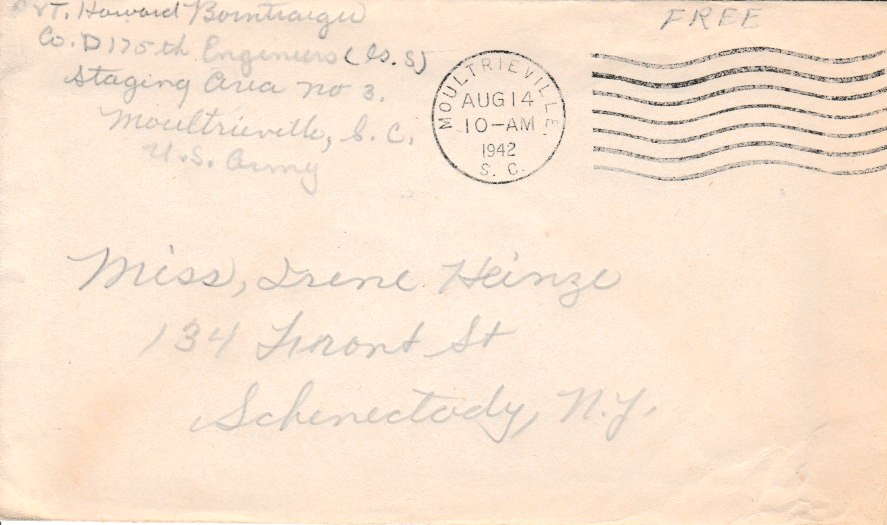 PVT. Howard Borntraiger
Co. D 175th Engineers (G.S)
Staging Area no 3.
Moultrieville, S.C.
U.S. Army
FREE
MOULTRIEVILLE,
AUG 14
10-AM
1942
S. C.
Miss, Irene Heinze
134 Front St
Schenectady, N.Y.